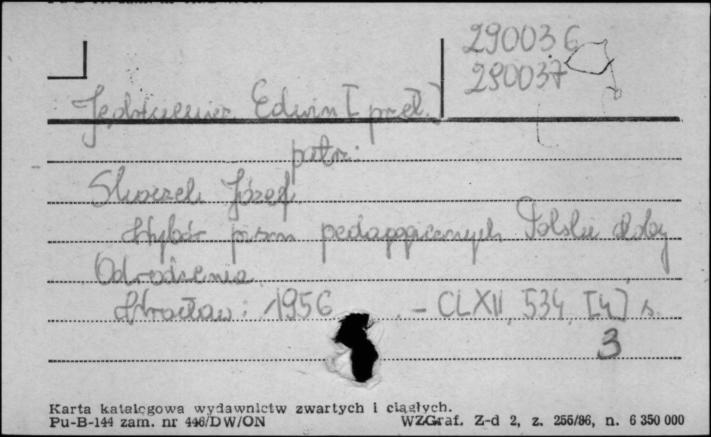 290036
290037
Jędrkiewicz Edwin [przeł.]
patrz:
Skoczek Józef
Wybór pism pedagogicznych Polski doby
Odrodzenia
Wrocław: 1956 - CLXII, 534, [4] s.
3
Karta katalogowa wydawnictw zwartych i ciągłych.
Pu-B-144 zam. nr 446/DW/ON WZGraf. Z-d 2, z. 256/86, n. 6 350 000